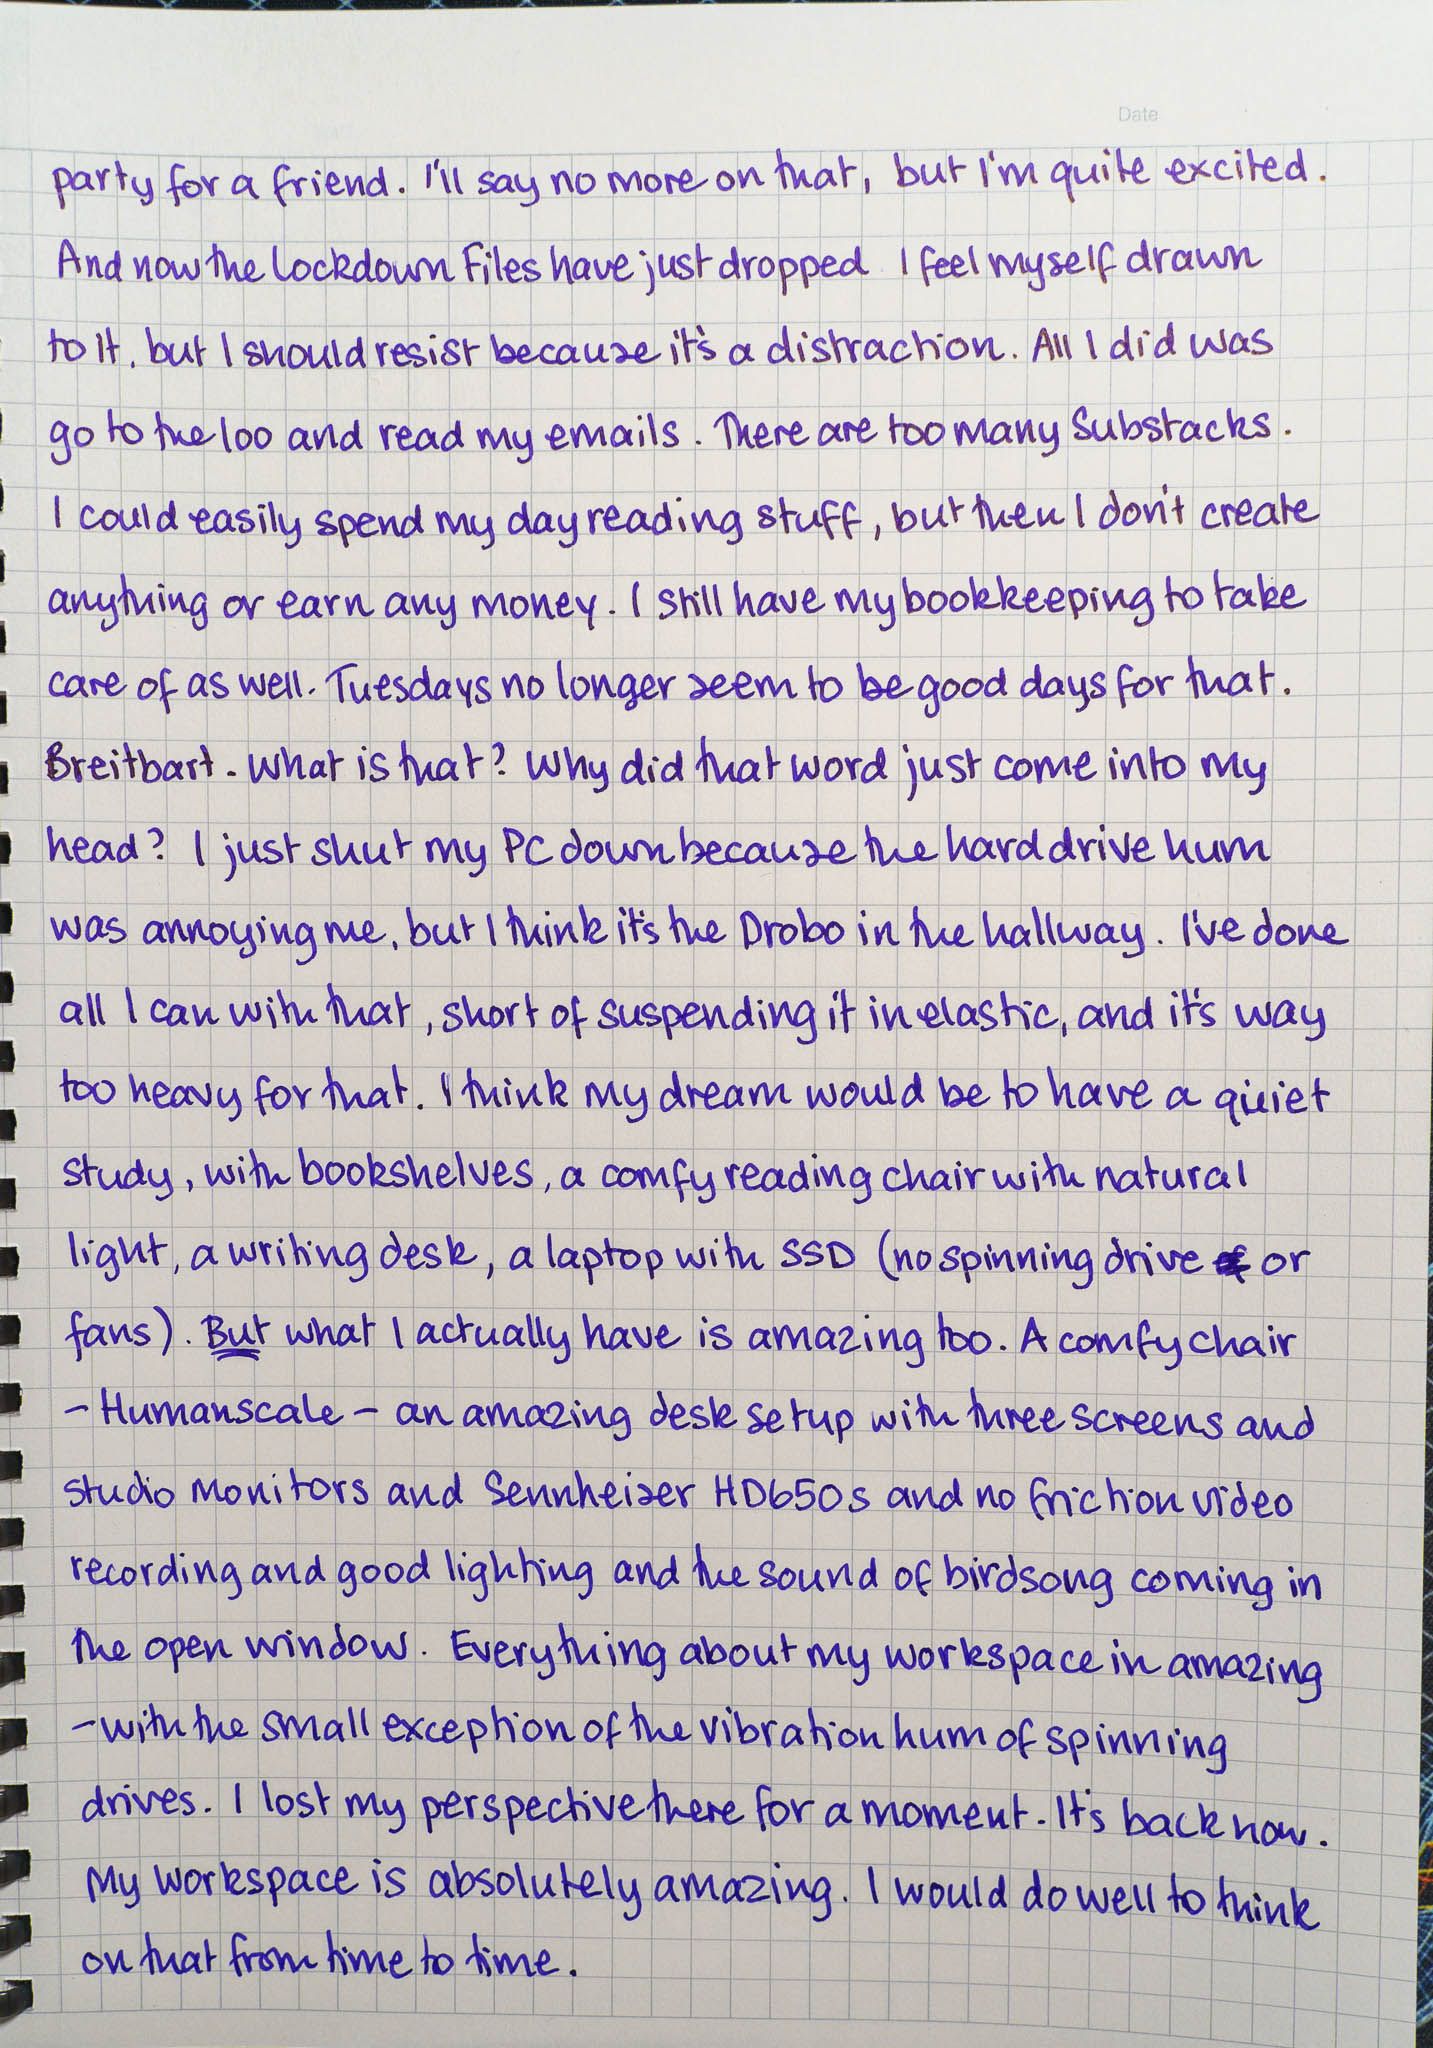 Date
party for a friend. I'll say no more on that, but I'm quite excited.
And now the Lockdown Files have just dropped I feel myself drawn
to it, but I should resist because it's a distraction. All I did was
go to the loo and read my emails. There are too many Substacks.
I could easily spend my day reading stuff, but then I don't create
anything or earn any money. I still have my bookkeeping to take
care of as well. Tuesdays no longer seem to be good days for that.
Breitbart. What is that? Why did that word just come into my
head? I just shut my PC down because the hard drive hum
was annoying me, but I think it's the Drobo in the hallway. I've done
all I can with that, short of suspending it in elastic, and it's way
too heavy for that. I think my dream would be to have a quiet
study, with bookshelves, a comfy reading chair with natural
light, a writing desk, a laptop with SSD (no spinning drive or
fans). But what I actually have is amazing too. A comfy chair
- Humanscale - an amazing desk setup with three screens and
studio monitors and Sennheiser HD650s and no friction video
recording and good lighting and the sound of birdsong coming in
the open window. Everything about my workspace in amazing
- with the small exception of the vibration hum of spinning
drives. I lost my perspective there for a moment. It's back now.
My workspace is absolutely amazing. I would do well to think
on that from time to time.